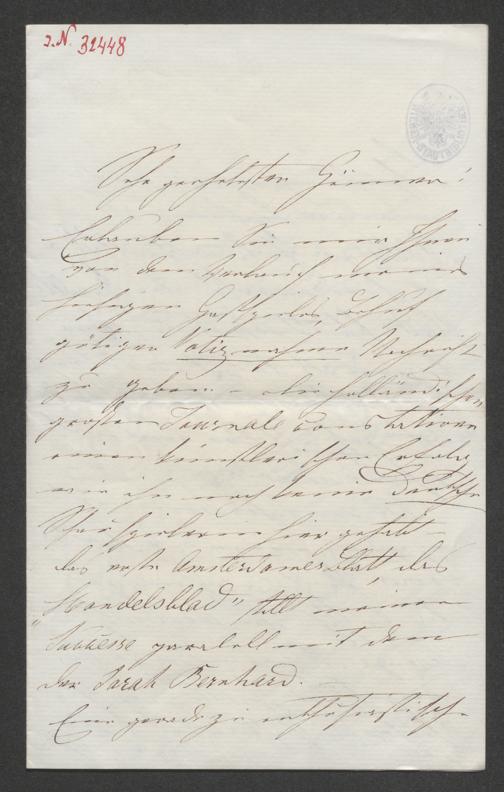 J.N. 32448
Sehr geehrtester Gönner!
Erlauben Sie mir Ihnen
von dem Verlauf meines
hiesigen Gastspieles, behufs
gütiger Notiznahme Nachricht
zu geben – die holländischen
grossen Journale constatiren
einen künstlerischen Erfolg
wie ihn noch keine deutsche
Schauspielerin hier gehabt –
das erste Amsterdamer Blatt, das
„Handelsblad" stellt meine
Successe parallell mit dem
der Sarah Bernhard. –
Eine geradezu enthusiastische